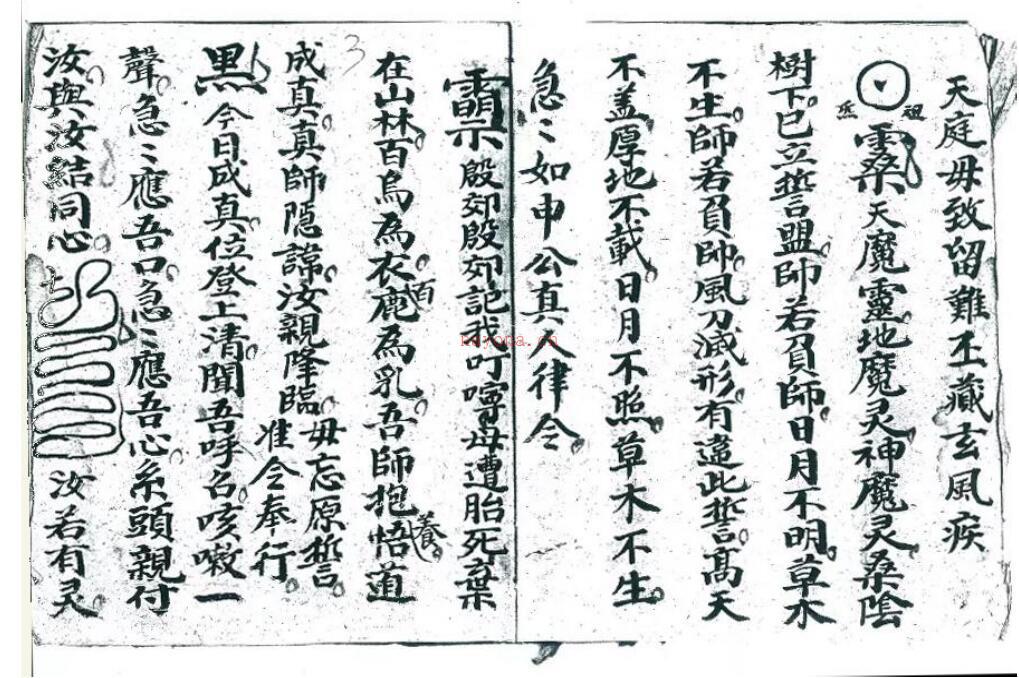 天庭毋致留難丕藏玄風疾
祖
炁
天魔靈地魔灵神魔灵桑陰
樹下。已立誓盟。師若負師。日月不明。草木
不生。師若負師。風刀滅形。有違此誓。高天
不盖厚地不載。日月不照。草木不生。
急々如申公真人律令。
殷郊殷郊記我叮嚀。母遭胎死棄
在山林。百鳥為衣。百鹿為乳。吾師抱養。悟道
成真。真師隱諱。汝親降臨。毋忘原誓。
准令奉行。
黑 今日成真。位登上清。聞吾呼名。咳嗽一
聲。急々應吾口。急々應吾心。糸頭親付
汝。與汝結同心。
汝若有灵
3
nayona.cn